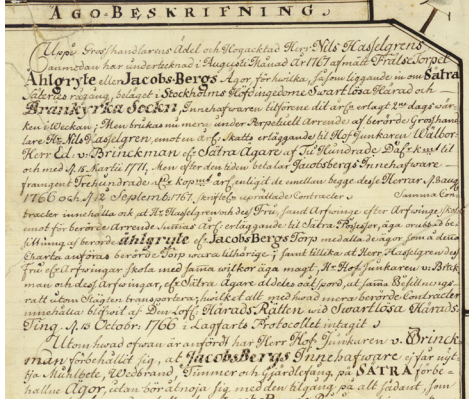 ÄGO-BESKRIFNING.
Uppå Grosshandlarens Ädel och Högacktad Herr Nils Hasselgrens
Anmodan har underteknad i Augusti Månad År 1767 afmätt Frälse Torpet
Ahlgryte eller Jacobs-Bergs Ägor, för hvilka, såsom liggande inom Sätra
Säteries rågång, beläget i Stockholms Höfdingedöme Swartlösa Härad och
Brankyrka Sockn, Innehafwaren tilförene dit årl. erlagt 2ne dags wär-
ken i Weckan; Men brukas nu mera under Perpetuell Arrende af berörde Grosshand-
lare Hr. Nils Hasselgren, emot en årl. Skatts erläggande til Hof Junkaren Wälbor.
Herr Ed. v. Brinckman eller Sätra Ägare af Tu Hundrade Dal. K.mt til
och med d. 15 Martii 1771, Men efter den tiden betalar Jacobsbergs Innehafware
Trehundrade kop.mt årl. enligit de emellan begge desse Herrar d. Aug.
1766 och d. 12 Septemb. 1767. skriftel. uprättade Contracter Samma Con-
tracter innehålla ock at Hr. Hasselgren och dess Fru, samt Arfwinge efter Arfwinge skola
emot förberörde Arrende Summas årl. erläggande til Sätra Possessor, äga orubbad be-
sittning af berörde ahlgryte eller JacobsBergs Torp med alla de ägor som å denna
Charta anföras berörde Torp wara tilhörige; samt tillika at Herr Hasselgren dess
Fru eller Arfwingar skola med samma wilkor äga magt, Hr. Hof Junkaren v. Brink-
man och dess Arfwingar, eller Sätra Ägare aldeles oåtspord, at samma Besittnings-
rätt utom Slägten transportera, hwilket alt med hwad mera berörde Contracter
innehålla blifwit af Den Lofl. Härads Rätten wid Swartlösa Härads
Ting d. 13 Octobr. 1766 i Lagfarts Protocollet intagit
Utom hwad ofwan är anfördt har Herr Hof Junkaren v. Brinck
man förbehållit sig, at JacobsBergs Innehafware ej får nyt-
tja Mulbete, Wedbrand, Timmer och Gjärdslefång, på SÄTRA förbe-
hållne Ägor, utan bör åtnöja sig med den tilgång på alt sådant, som